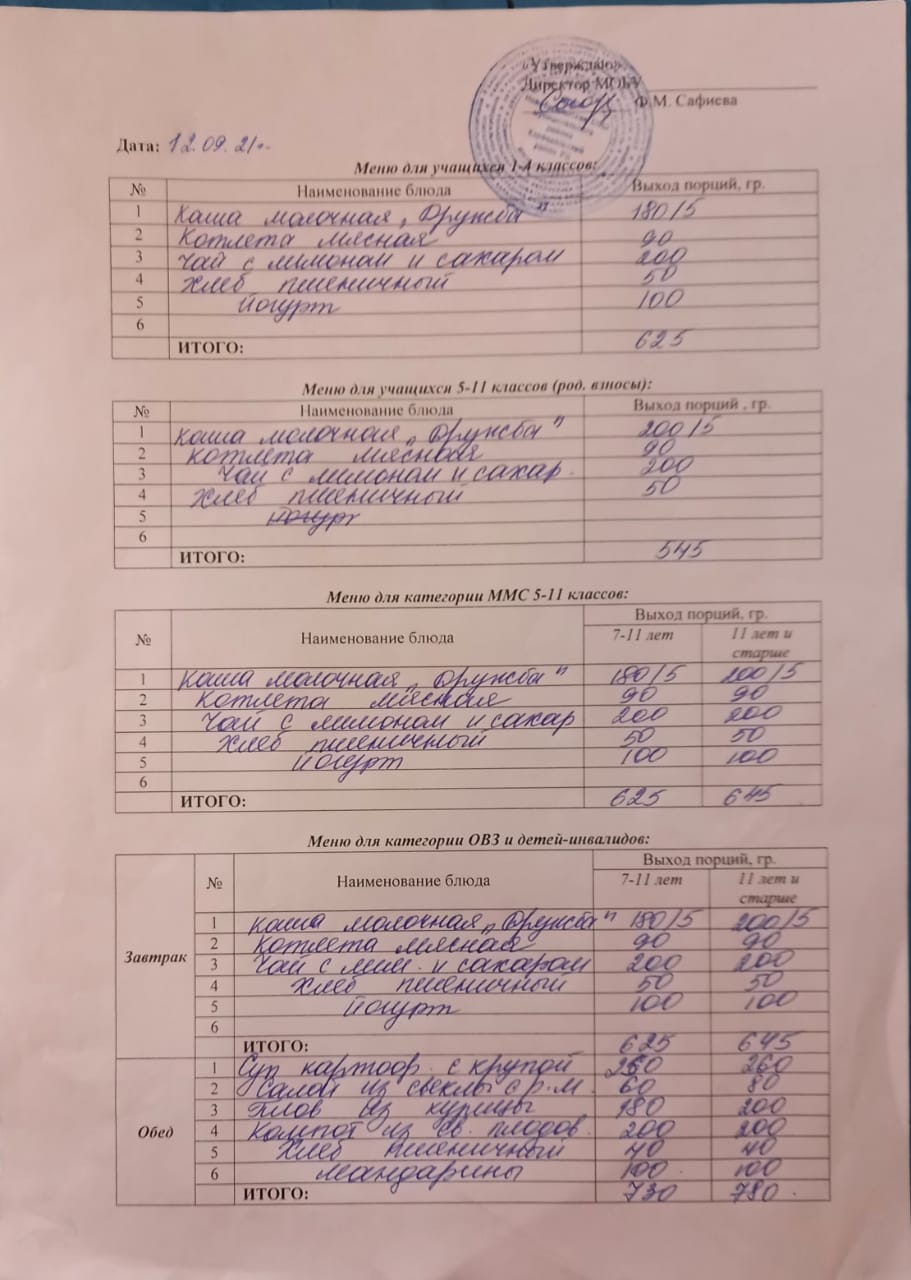 «Утверждаю»
Директор МОБУ
Ф.М. Сафиева
Дата: 12.09.21г.
Меню для учащихся 1-4 классов:
№ Наименование блюда Выход порций, гр.
1 Каша молочная „Дружба" 180/5
2 Котлета мясная 90
3 Чай с лимоном и сахаром 200
4 Хлеб пшеничный 50
5 Йогурт 100
6
ИТОГО: 625
Меню для учащихся 5-11 классов (род. взносы):
№ Наименование блюда Выход порций , гр.
1 Каша молочная „Дружба" 200/5
2 Котлета мясная 90
3 Чай с лимоном и сахар. 200
4 Хлеб пшеничный 50
5 Йогурт
6
ИТОГО: 545
Меню для категории ММС 5-11 классов:
№ Наименование блюда Выход порций, гр.
7-11 лет 11 лет и старше
1 Каша молочная „Дружба" 180/5 200/5
2 Котлета мясная 90 90
3 Чай с лимоном и сахар 200 200
4 Хлеб пшеничный 50 50
5 Йогурт 100 100
6
ИТОГО: 625 645
Меню для категории ОВЗ и детей-инвалидов:
№ Наименование блюда Выход порций, гр.
7-11 лет 11 лет и старше
Завтрак
1 Каша молочная „Дружба" 180/5 200/5
2 Котлета мясная 90 90
3 Чай с лим. и сахаром 200 200
4 Хлеб пшеничный 50 50
5 Йогурт 100 100
6
ИТОГО: 625 645
Обед
1 Суп картоф. с крупой 260
2 Салат из свеклы с р.м. 60 80
3 Плов из курицы 180 200
4 Компот из св. плодов 200 200
5 Хлеб пшеничный 40 40
6 Мандарины 100 100
ИТОГО: 730 780